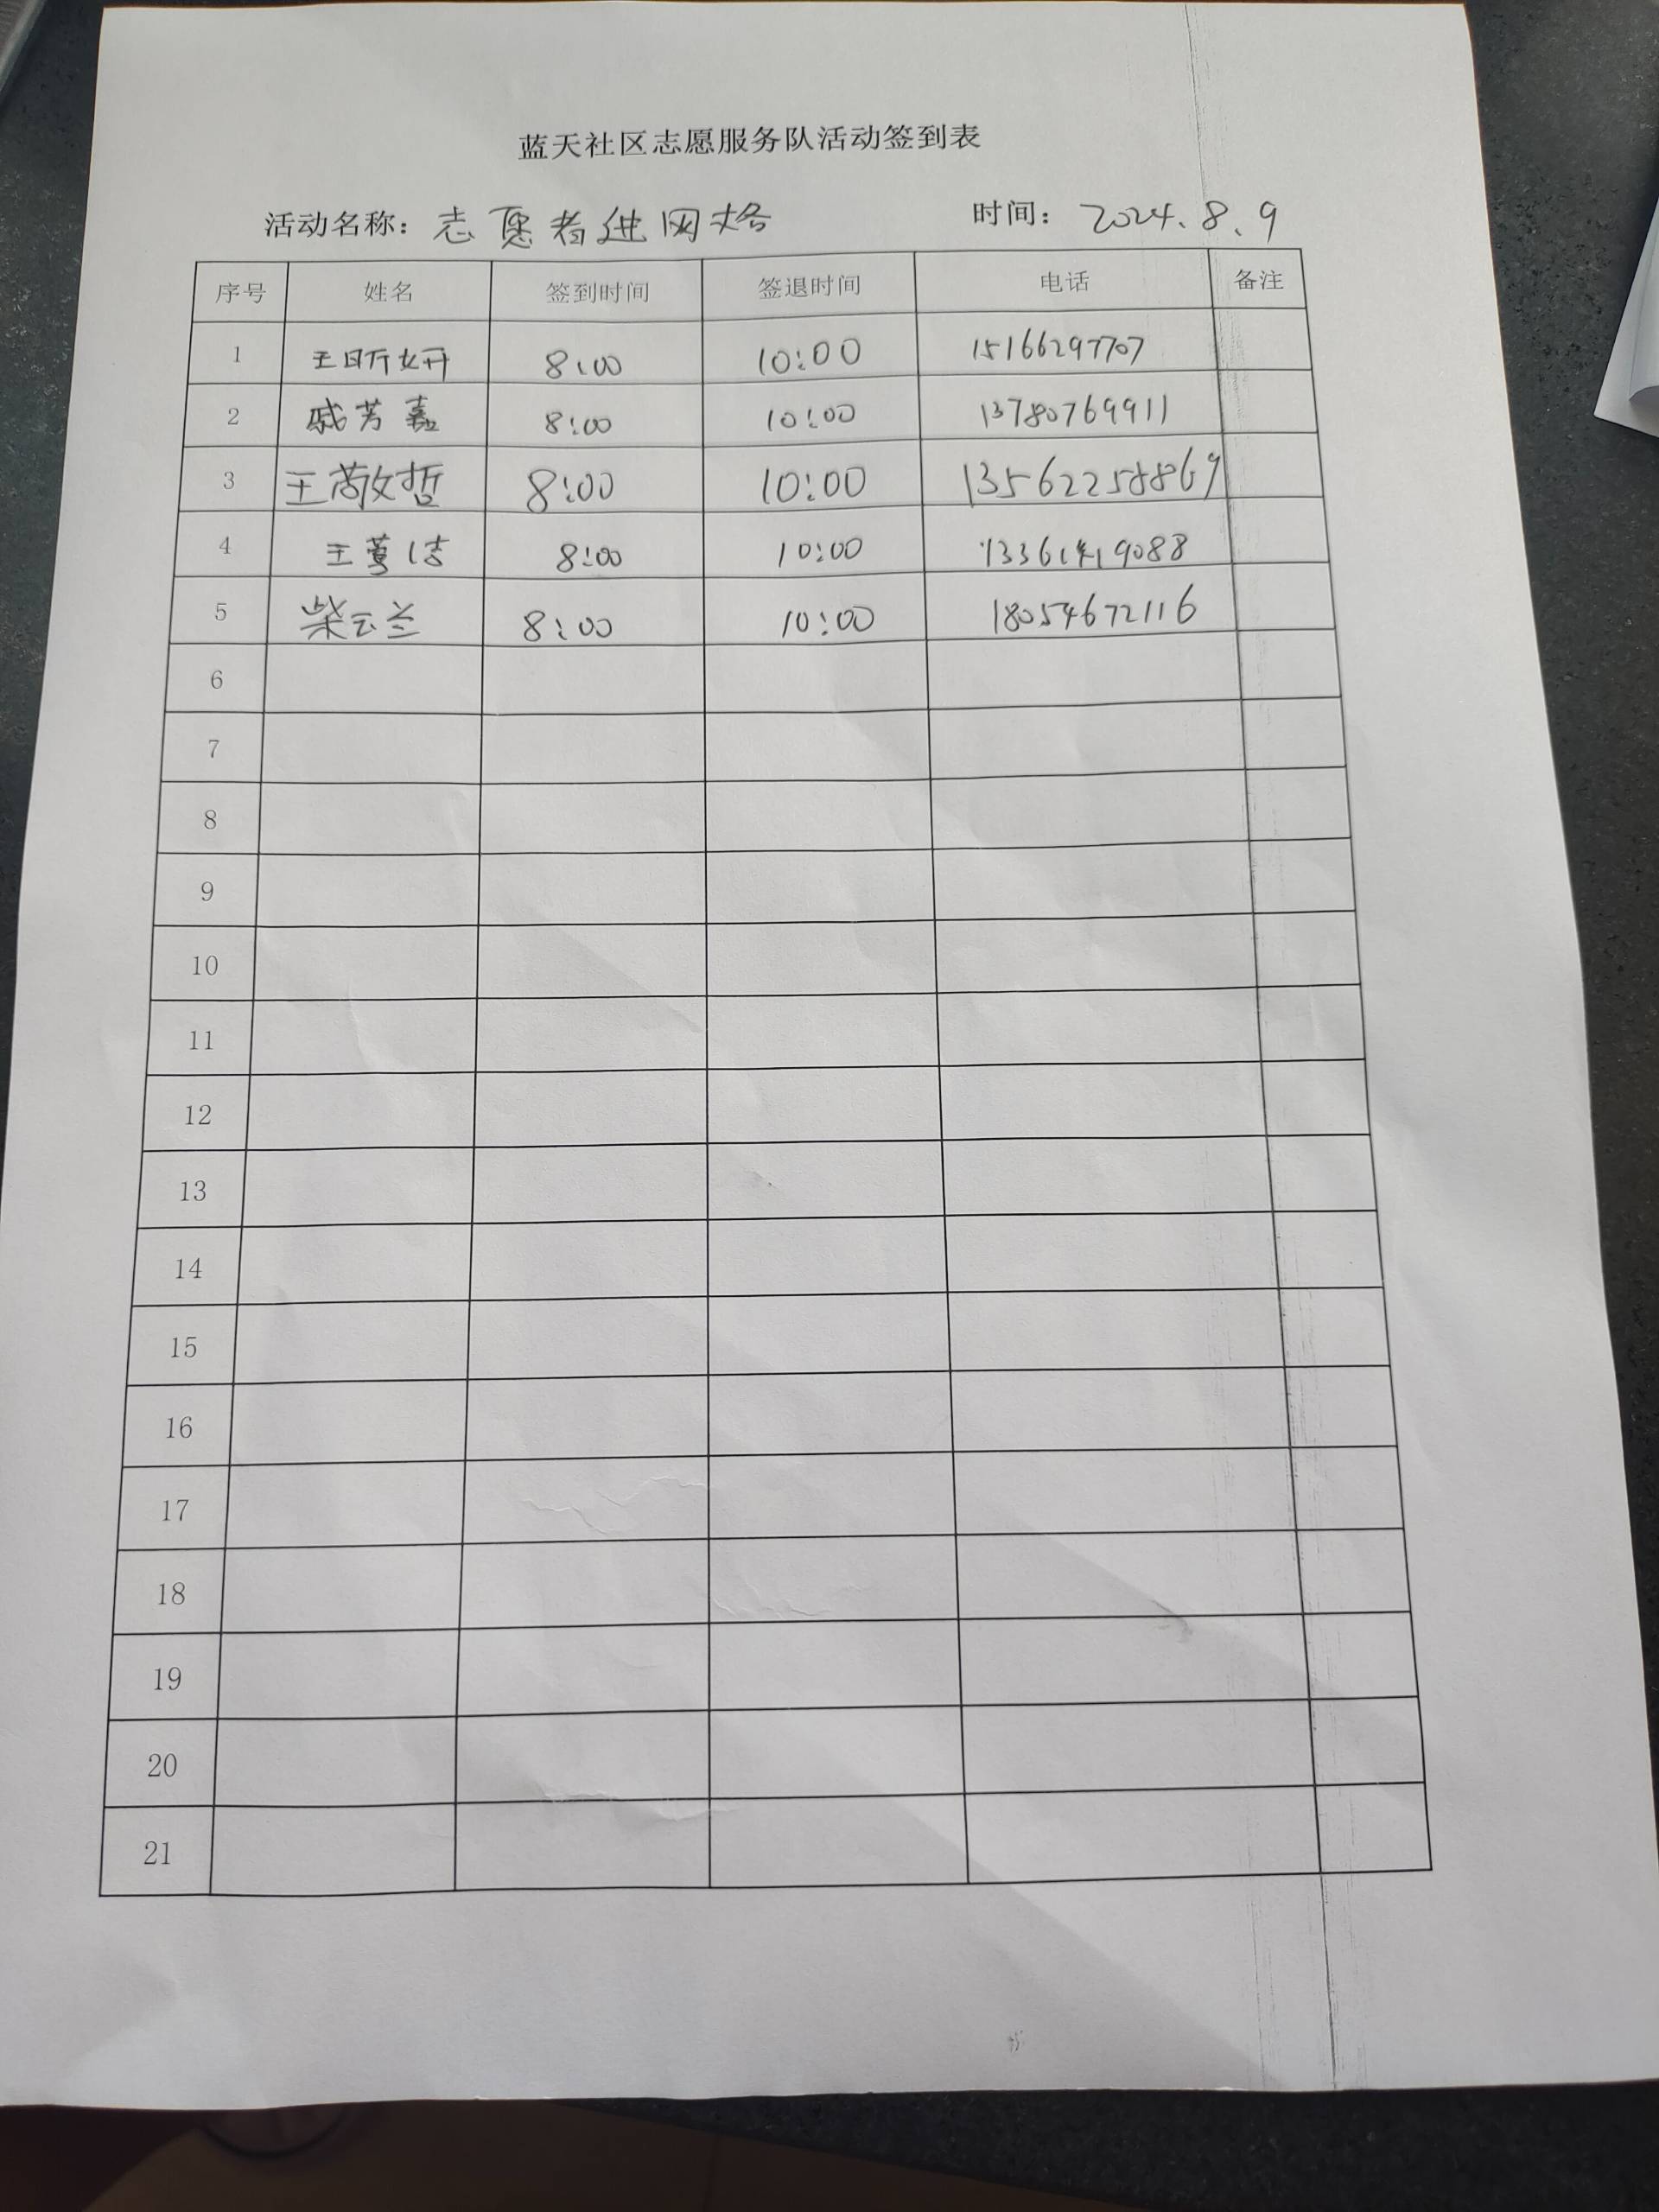 蓝天社区志愿服务队活动签到表
活动名称：志愿者进网格 时间：2024.8.9
序号 姓名 签到时间 签退时间 电话 备注
1 王昕妍 8:00 10:00 15166297707
2 戚芳嘉 8:00 10:00 13780769911
3 王敬哲 8:00 10:00
4 8:00 10:00
5 柴云兰 8:00 10:00 18054672116
6
7
8
9
10
11
12
13
14
15
16
17
18
19
20
21